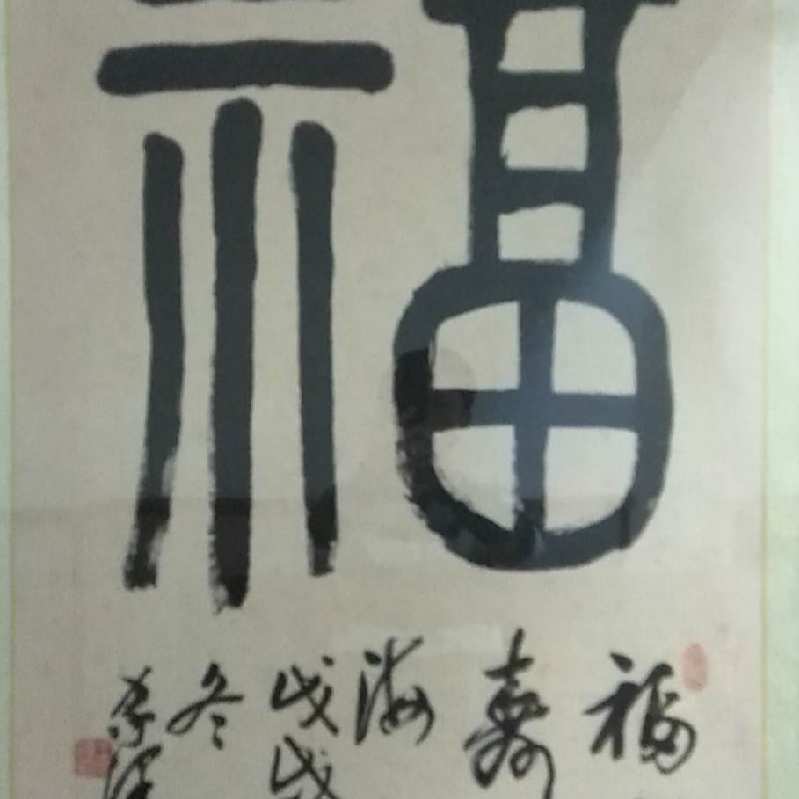 福
福
壽
海
戊戌
冬